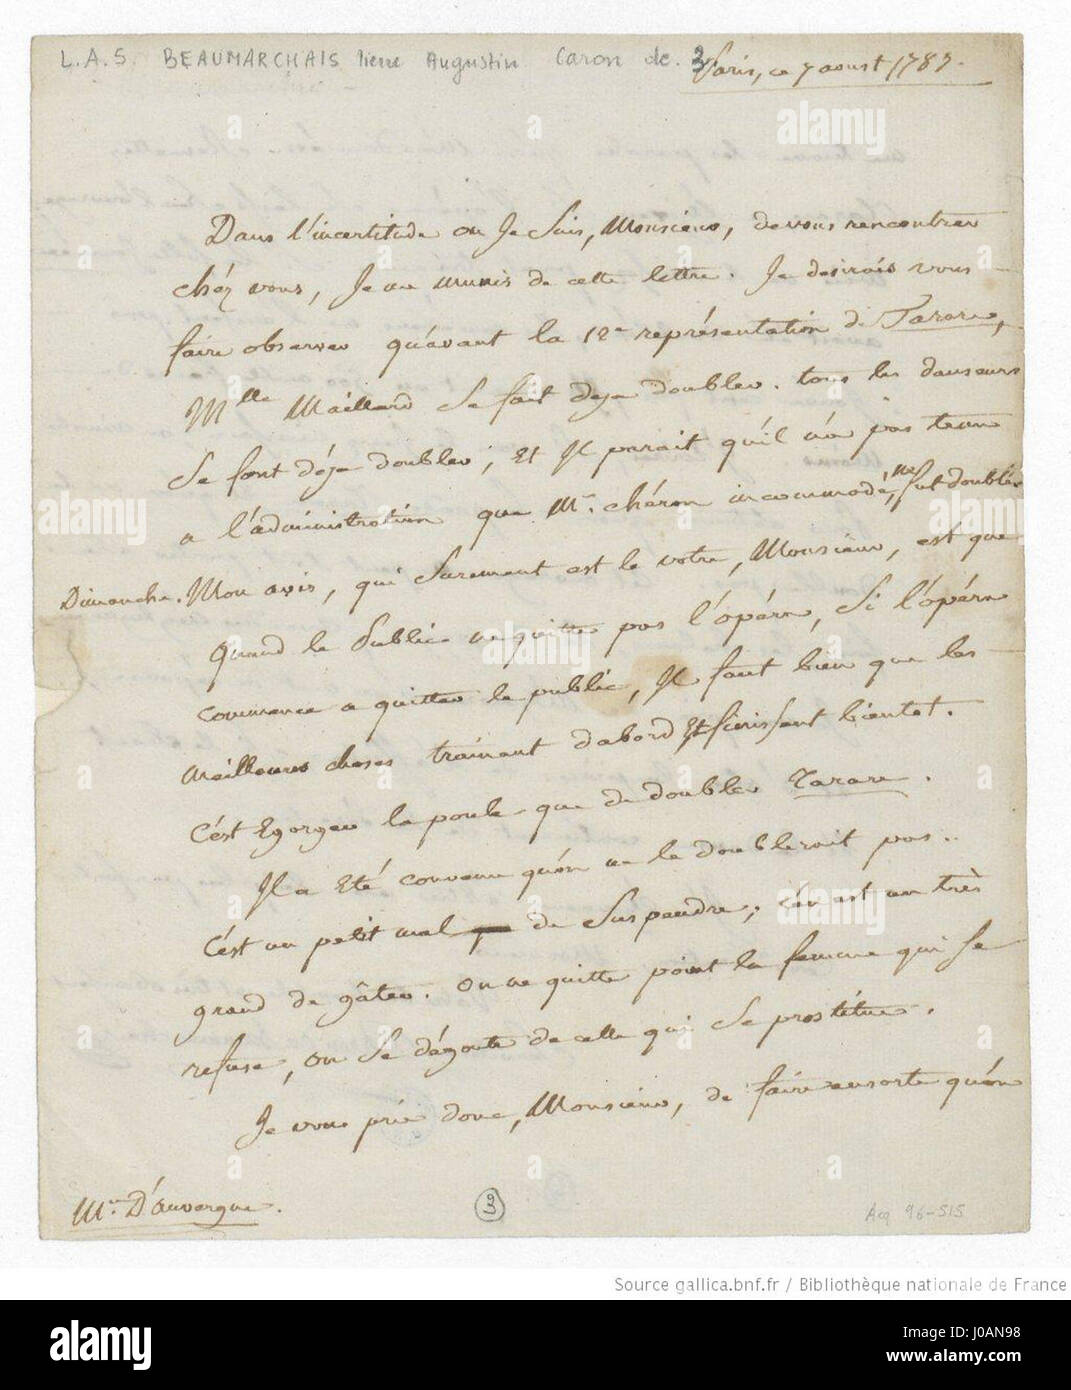 L.A.S. BEAUMARCHAIS Pierre Augustin Caron de.
Paris, ce 7 aoust 1787.
Dans l'incertitude ou Je Suis, Monsieur, de vous rencontrer
chéz vous, Je me munis de cette lettre. Je desirois vous
faire observer qu'avant la 12e représentation de Tarare,
Mlle Maillard Se fait deja doubler. tous les danseurs
Se font déja doubler; Et Il parait qu'il n'a pas tenu
a l'administration que Mr. chéron incommodé, ne fut doublé
Dimanche. Mon avis, qui Surement est le votre, Monsieur, est que
quand le Public ne quitte pas l'opéra, Si l'opéra
commence a quitter le public, Il faut bien que les
meilleures choses trainent dabord Et finissent bientot.
C'est Egorger la poule que de doubler Tarare.
Il a Eté convenu qu'on ne le doubleroit pas..
C'est un petit mal de Suspendre; c'en est un très
grand de gâter. on ne quitte point la femme qui Se
refuse, on Se dégoute de celle qui Se prostitue.
Je vous prie donc, Monsieur, de faire ensorte qu'on
Mr. D'auvergne.
3
Acq 96-515
Source gallica.bnf.fr / Bibliothèque nationale de France
alamy
Image ID: J0AN98
www.alamy.com